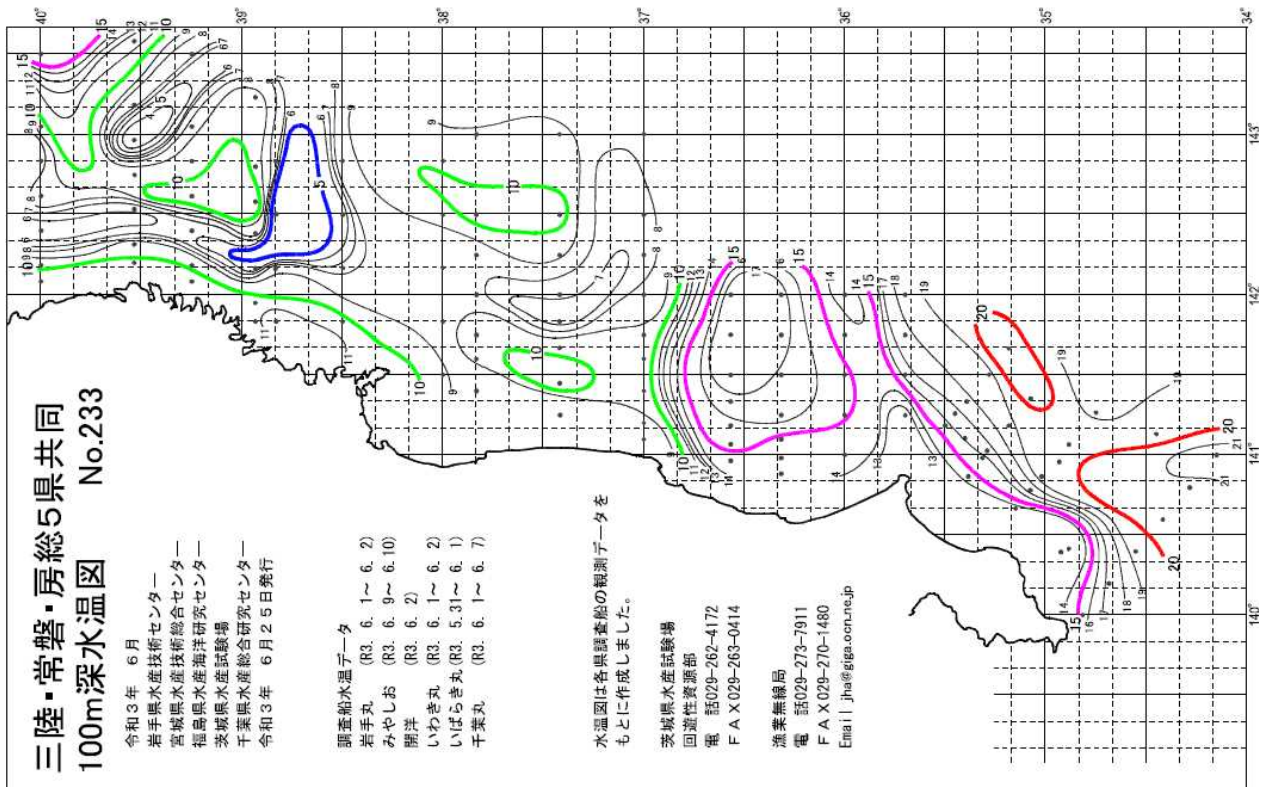 三陸・常磐・房総5県共同
100m深水温図 No.233
令和3年 6月
岩手県水産技術センター
宮城県水産技術総合センター
福島県水産海洋研究センター
茨城県水産試験場
千葉県水産総合研究センター
令和3年 6月25日発行
調査船水温データ
岩手丸 (R3. 6. 1～ 6. 2)
みやしお (R3. 6. 9～ 6.10)
開洋 (R3. 6. 2)
いわき丸 (R3. 6. 1～ 6. 2)
いばらき丸 (R3. 5.31～ 6. 1)
千葉丸 (R3. 6. 1～ 6. 7)
水温図は各県調査船の観測データを
もとに作成しました。
茨城県水産試験場
回遊性資源部
電 話029-262-4172
ＦＡＸ029-263-0414
漁業無線局
電 話029-273-7911
ＦＡＸ029-270-1480
Email jha@giga.ocn.ne.jp
40°
39°
38°
37°
36°
35°
34°
143°
142°
141°
140°